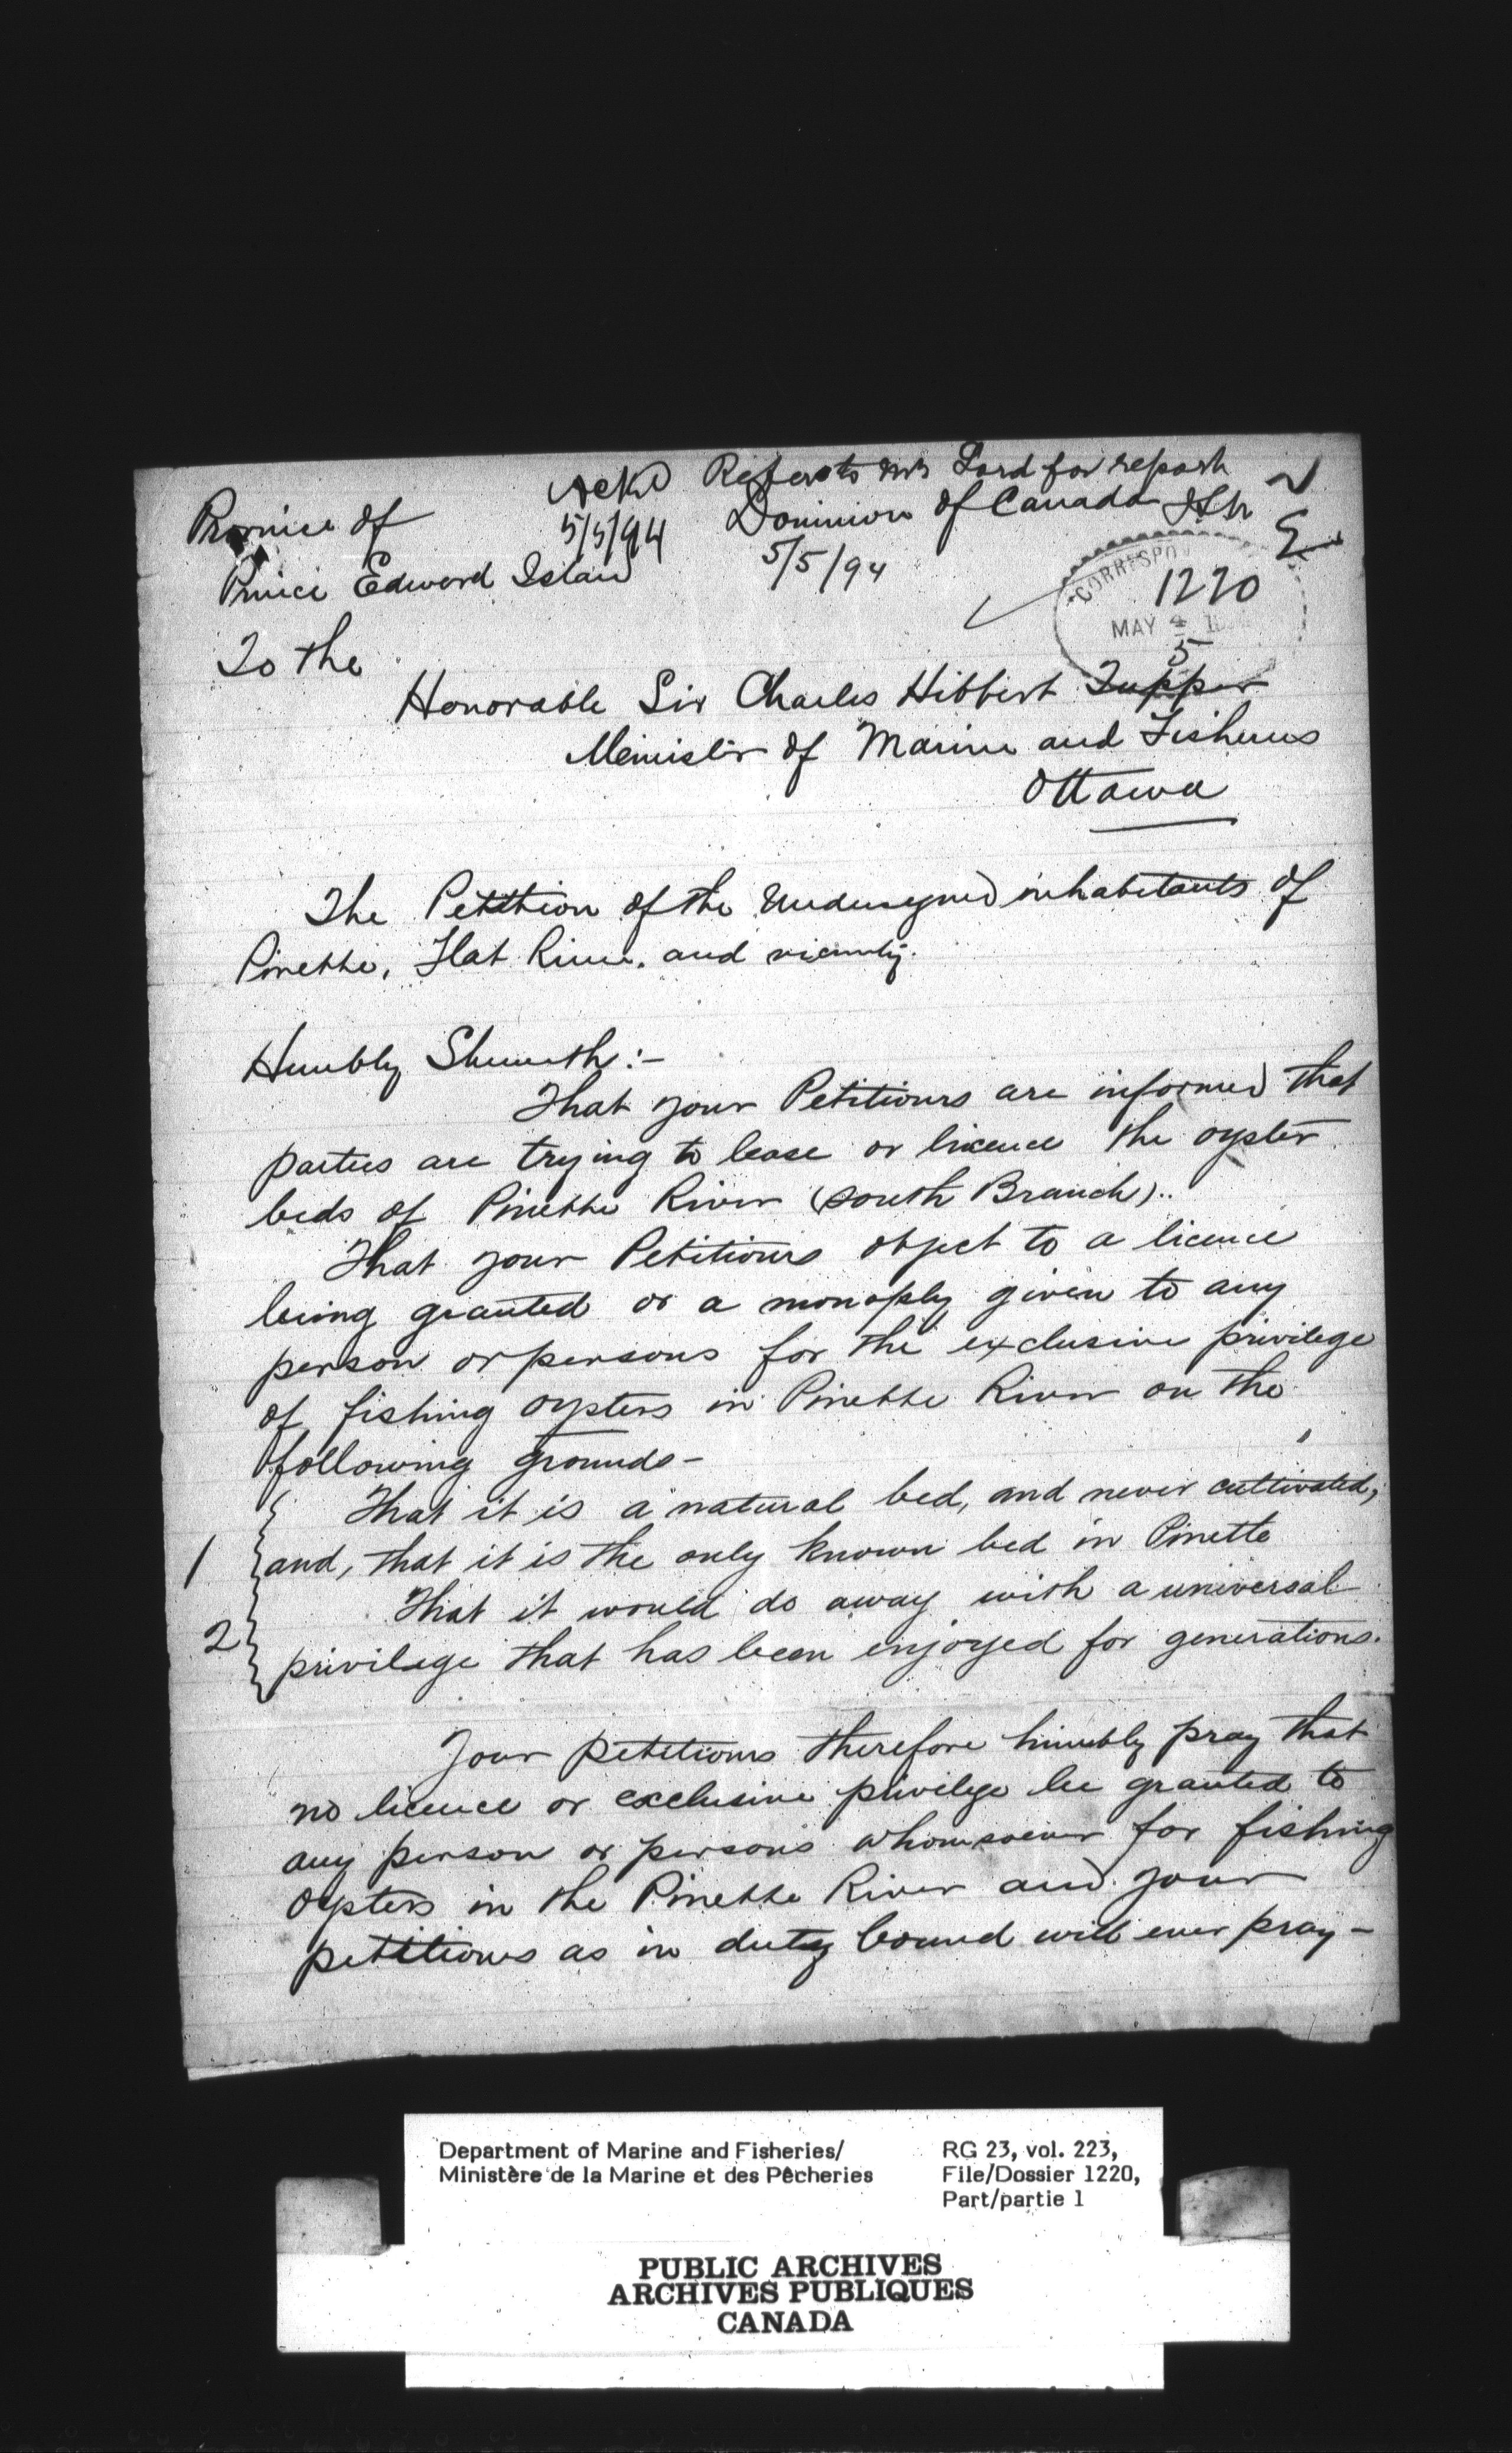 Ackd Refer to Mr Lord for report
Province of 5/5/94 Dominion of Canada
Prince Edward Island 5/5/94
CORRESPO
1220
MAY 4
5
To the
Honorable Sir Charles Hibbert Tupper
Minister of Marine and Fisheries
Ottawa
The Petition of the Undersigned inhabitants of
Pinette, Flat River, and vicinity.
Humbly Sheweth:-
That your Petitioners are informed that
parties are trying to lease or licence the oyster
beds of Pinette River (south Branch)..
That your Petitioners object to a licence
being granted or a monoply given to any
person or persons for the exclusive privilege
of fishing oysters in Pinette River on the
following grounds-
That it is a natural bed, and never cultivated,
1 and, that it is the only known bed in Pinette
That it would do away with a universal
2 privilege that has been enjoyed for generations.
Your petitioners therefore humbly pray that
no licence or exclusive privilege be granted to
any person or persons whomsoever for fishing
Oysters in the Pinette River and your
petitioners as in duty bound will ever pray-
Department of Marine and Fisheries/
Ministère de la Marine et des Pêcheries
RG 23, vol. 223,
File/Dossier 1220,
Part/partie 1
PUBLIC ARCHIVES
ARCHIVES PUBLIQUES
CANADA